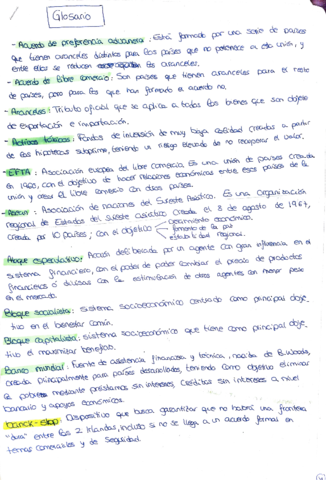 Glosario
- Acuerdo de preferencia aduanera: Está formado por una serie de países
que tienen aranceles distintos para los países que no pertenece a ella unión, y
entre ellos se reducen los aranceles.
- Acuerdo de libre comercio: Son países que tienen aranceles para el resto
de países, pero para los que han formado el acuerdo no.
- Aranceles: Tributo oficial que se aplica a todos los bienes que son objeto
de exportación e importación.
- Activos tóxicos: Fondos de inversión de muy baja calidad creados a partir
de las hipotecas subprime, teniendo un riesgo elevado de no recuperar el valor.
EFTA: Asociación europea del libre comercio. Es una unión de países creada
en 1960, con el objetivo de hacer relaciones económicas entre esos países de la
unión y crear el libre comercio con dichos países.
Asean: Asociación de naciones del Sureste Asiático. Es una organización
regional de Estados del sureste asiático creada el 8 de agosto de 1967,
creada por 10 países; con el objetivo
crecimiento económico.
fomento de la paz
estabilidad regional.
Ataque especulativo: Acción deliberada por un agente con gran influencia en el
sistema financiero, con el poder de poder cambiar el precio de productos
financieros o divisas con la estimulación de otros agentes con menor peso
en el mercado.
Bloque socialista: sistema socioeconómico centrado como principal obje-
tivo en el bienestar común.
Bloque capitalista: sistema socioeconómico que tiene como principal obje-
tivo el maximizar beneficio.
Banco mundial: Fuente de asistencia financiera y técnica, nacida de B. Woods,
creada principalmente para países desarrollados, teniendo como objetivo eliminar
la pobreza mediante préstamos sin intereses, créditos sin intereses a nivel
bancario y apoyos económicos.
banck-stop: Dispositivo que busca garantizar que no habrá una frontera
"dura" entre las 2 Irlandas, incluso si no se llega a un acuerdo formal en
temas comerciales y de seguridad.